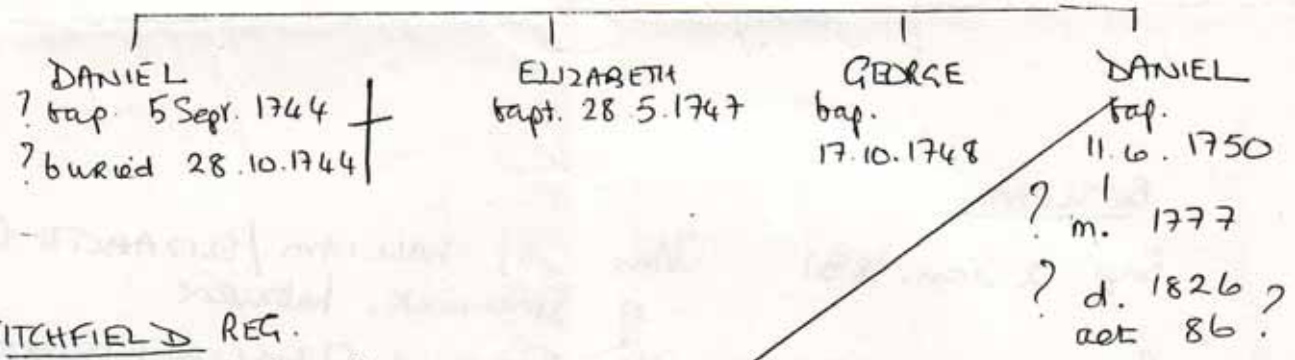 DANIEL
? bap. 5 Sept. 1744
? buried 28.10.1744
ELIZABETH
bapt. 28.5.1747
GEORGE
bap.
17.10.1748
DANIEL
bap.
11.6.1750
? m. 1777
? d. 1826
aet 86 ?
ITCHFIELD REG.